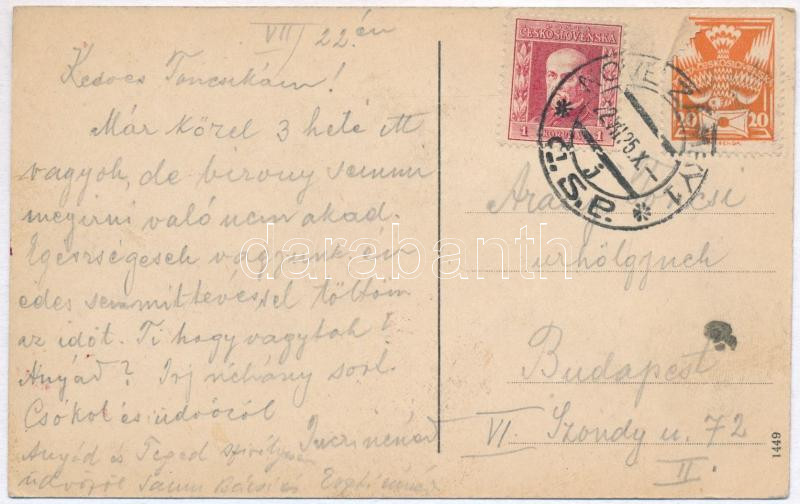 VII 22.én
Kedves Toncsikám!
Már közel 3 hete itt
vagyok, de bizony semmi
megirni való nem akad.
Egészségesek vagyunk, én
édes semmittevéssel töltöm
az időt. Ti hogy vagytok?
Anyád? Irj néhány sort.
Csókol és üdvözöl
Anyád és Téged
üdvözöl Bácsi és
ČESKOSLOVENSKA
1 1
20 20
22.VII.25.X-
Č.S.P.
urhölgynek
Budapest
VI. Szondy u. 72
II.
1449
darabanth